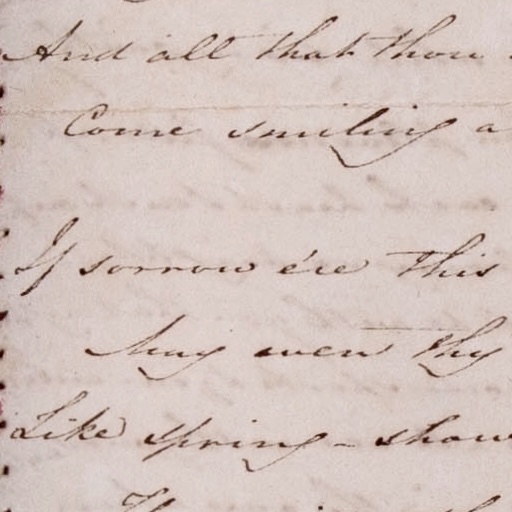 And all that thou
Come smiling a
If sorrow e're this
May even thy
Like spring-show